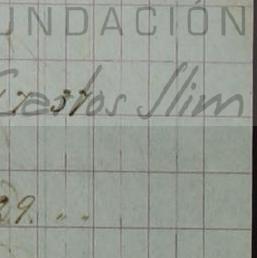 UNDACIÓN
Carlos Slim
7 57
29. " "